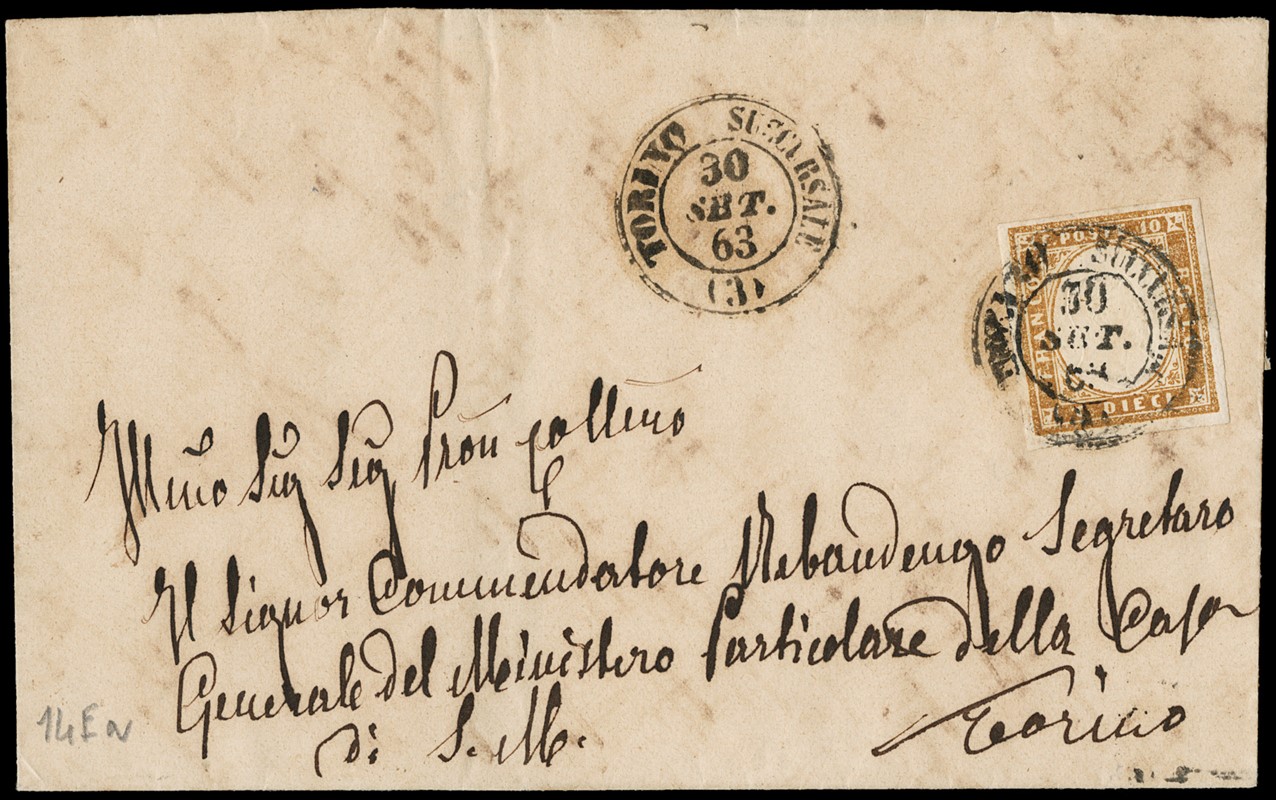 TORINO SUCCURSALE
30
SET.
63
(3)
C. POSTE 10
FRANCO
DIECI
TORINO SUCCURSALE
30
SET.
63
Illmo Sig Sig Pron Collmo
Il Signor Commendatore Rebaudengo Segretaro
Generale del Ministero Particolare della Casa
di S. M.
Torino
14E